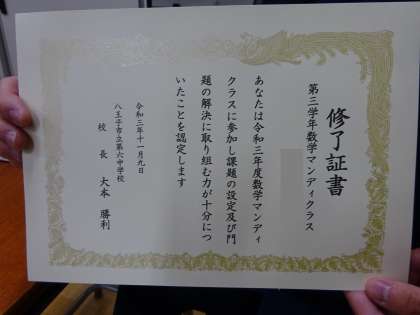 修了証書
第三学年数学マンディクラス
あなたは令和三年度数学マンディ
クラスに参加し課題の設定及び問
題の解決に取り組む力が十分につ
いたことを認定します
令和三年十一月九日
八王子市立第六中学校
校長 大本 勝利